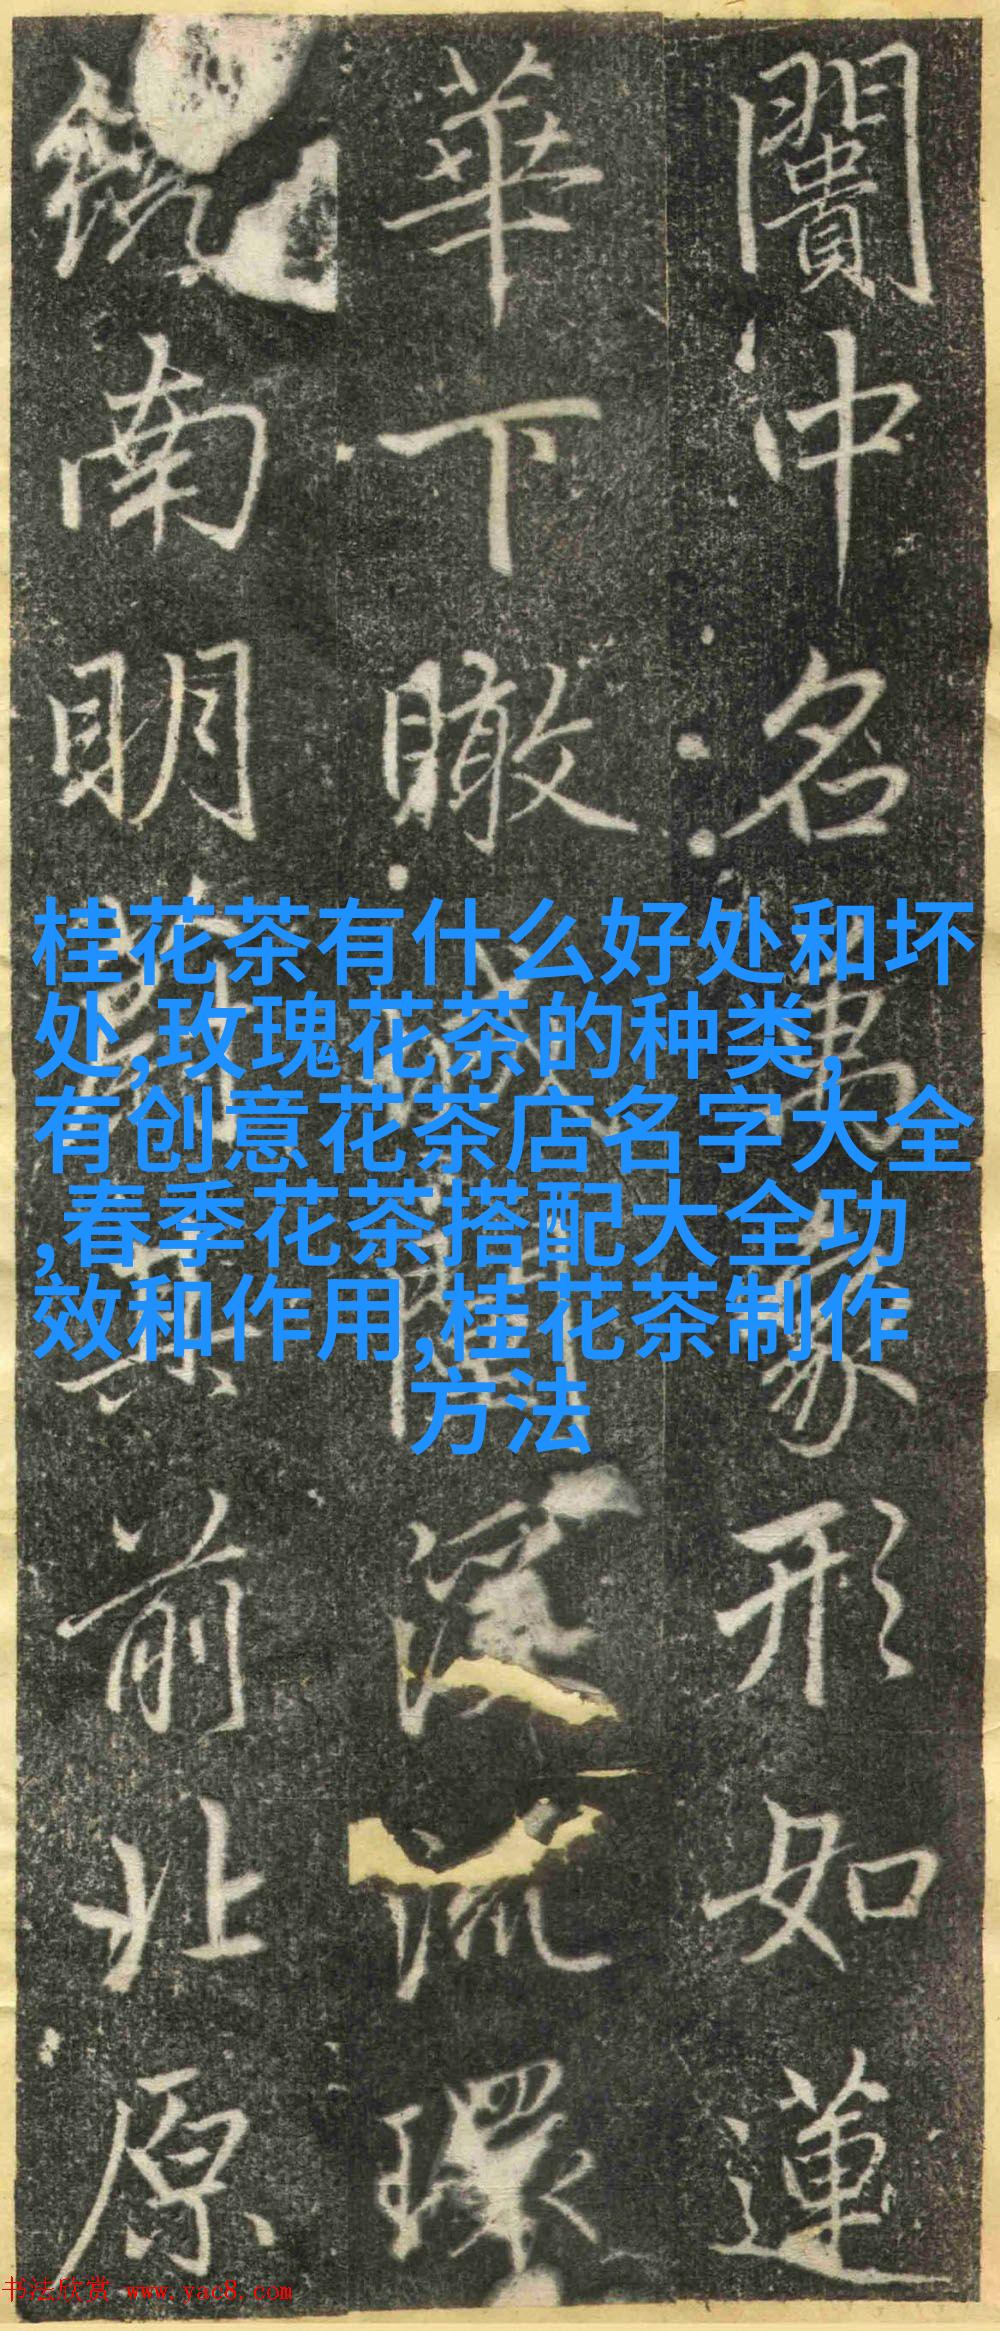 闠中名萬形如蓮
華下瞰城流環
南明其前北原
桂花茶有什么好处和坏
处,玫瑰花茶的种类,
有创意花茶店名字大全
,春季花茶搭配大全功
效和作用,桂花茶制作
方法
书法欣赏 www.yac8.com